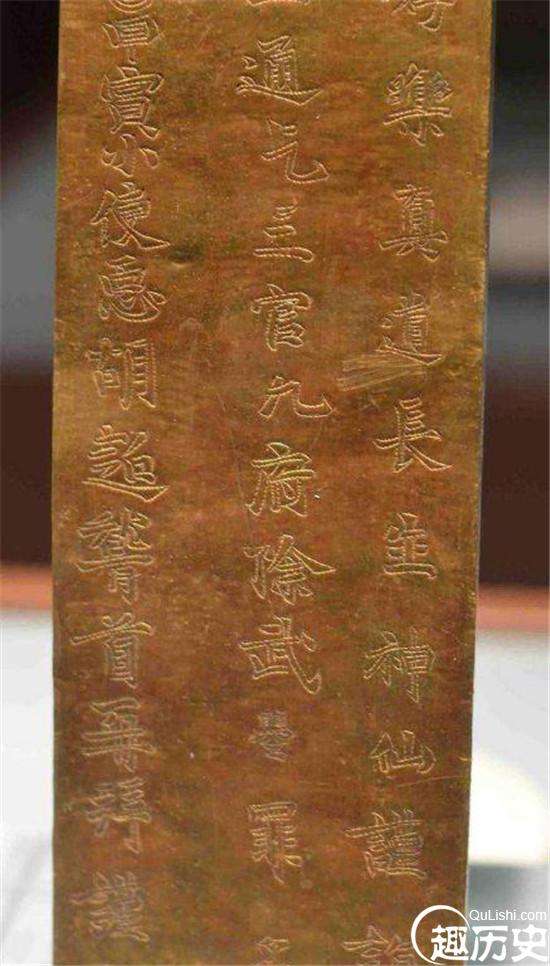 樂真道長生神仙謹詣
通乞三官九府除武曌罪
甲寅小使𢘑胡超稽首再拜謹
QuLishi.com
趣历史